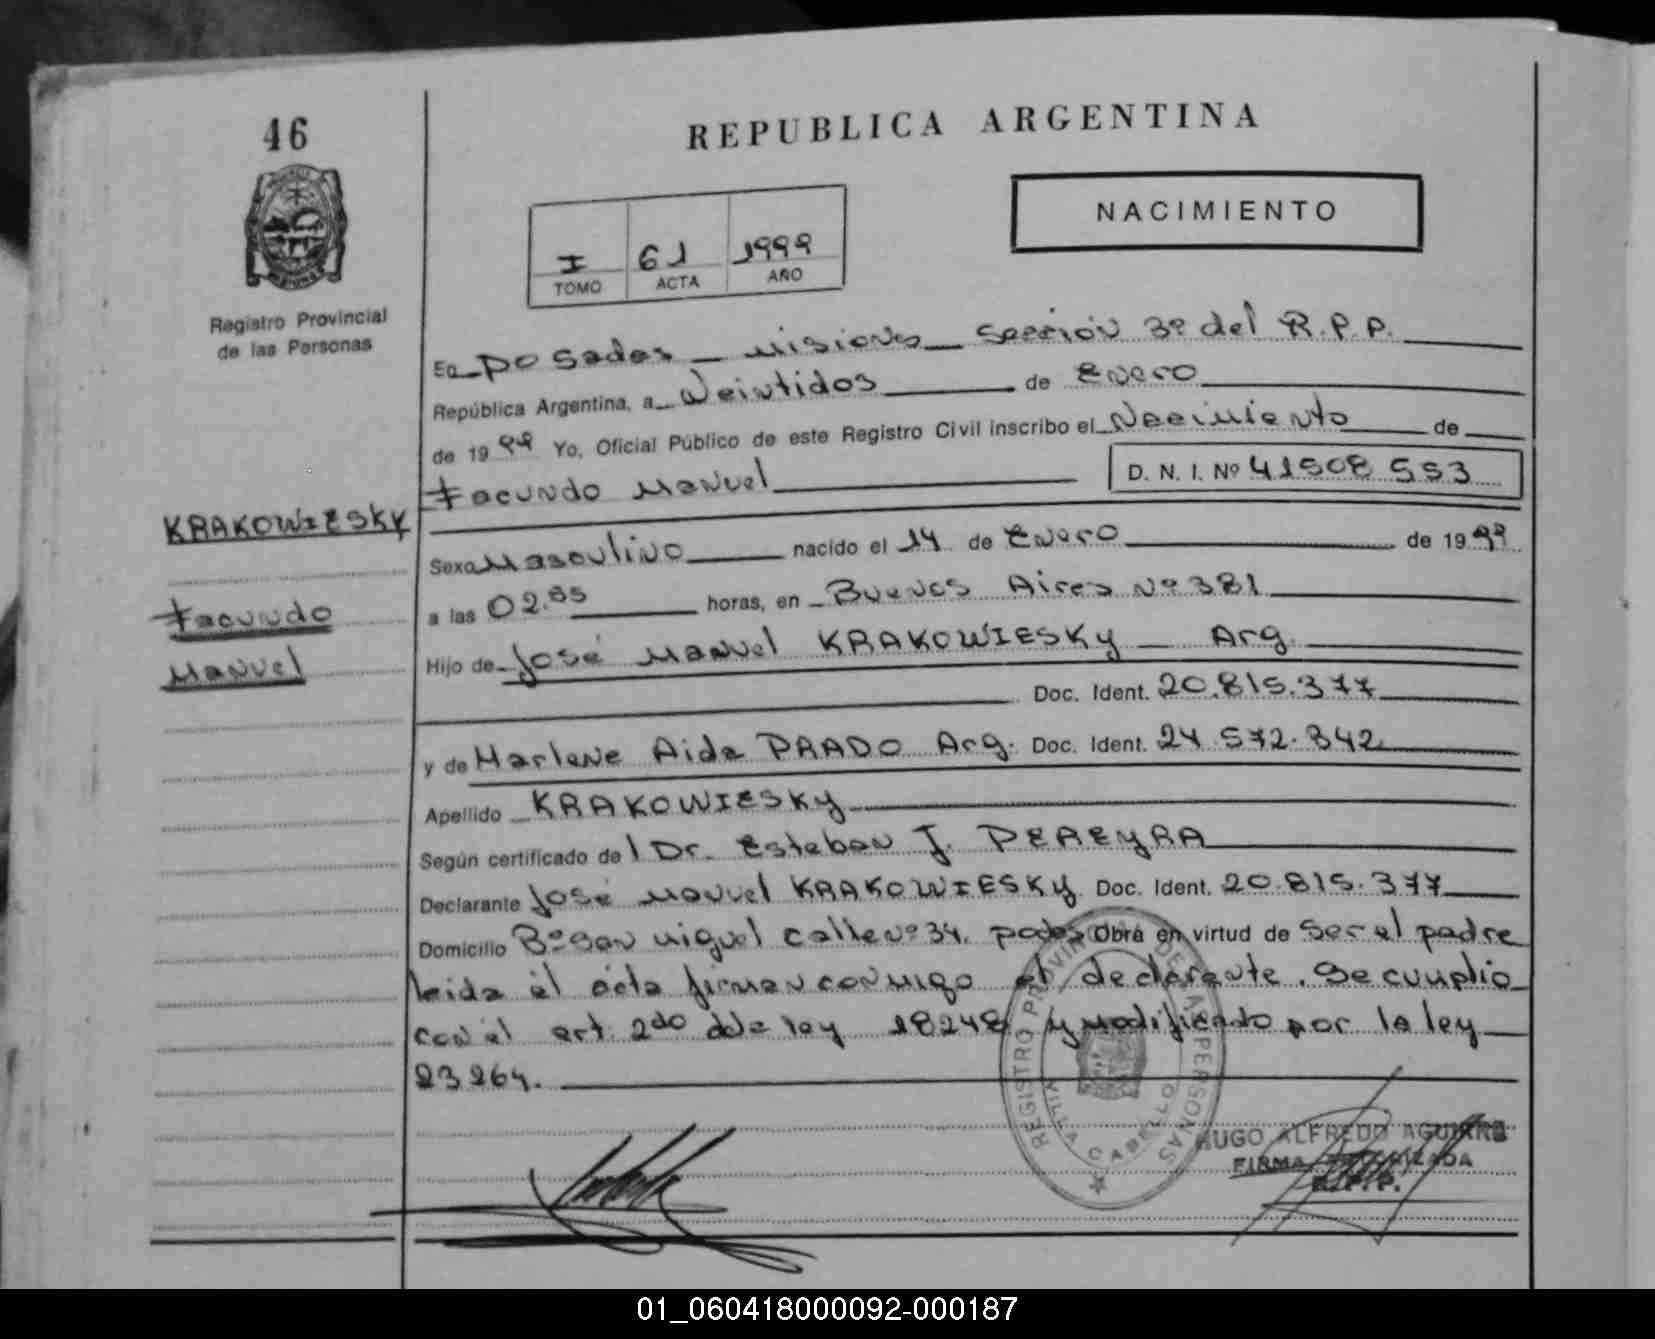 46
REPUBLICA ARGENTINA
NACIMIENTO
I 61 1999
TOMO ACTA AÑO
Registro Provincial
de las Personas
En Posadas - Misiones - Sección 3º del R.P.P.
República Argentina, a Veintidos de Enero
de 1999 Yo, Oficial Público de este Registro Civil inscribo el Nacimiento de
Facundo Manuel D. N. I. Nº 41508553
KRAKOWIESKY
Facundo
Manuel
Sexo Masculino nacido el 14 de Enero de 1999
a las 02.55 horas, en Buenos Aires Nº 381
Hijo de José Manuel KRAKOWIESKY - Arg.
Doc. Ident. 20.815.377
y de Marlene Aida PRADO Arg. Doc. Ident. 24.572.342
Apellido KRAKOWIESKY
Según certificado del Dr. Esteban J. PEREYRA
Declarante José Manuel KRAKOWIESKY Doc. Ident. 20.815.377
Domicilio Bº San Miguel calle Nº 34. Podas Obra en virtud de ser el padre
leida el acta firman conmigo el declarante. Se cumplio
con el art. 2do de la ley 18248 y modificado por la ley
23264.
REGISTRO PROVINCIAL DE LAS PERSONAS
VILLA CABELLO
HUGO ALFREDO AGUIRRE
FIRMA AUTORIZADA
R.P.P.
01_060418000092-000187